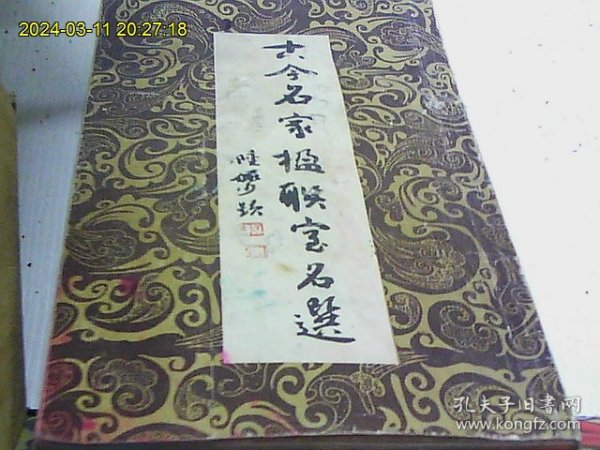 2024-03-11 20:27:18
古今名家楹联室名選
陸儼少題
孔夫子旧書网
www.kongfz.com